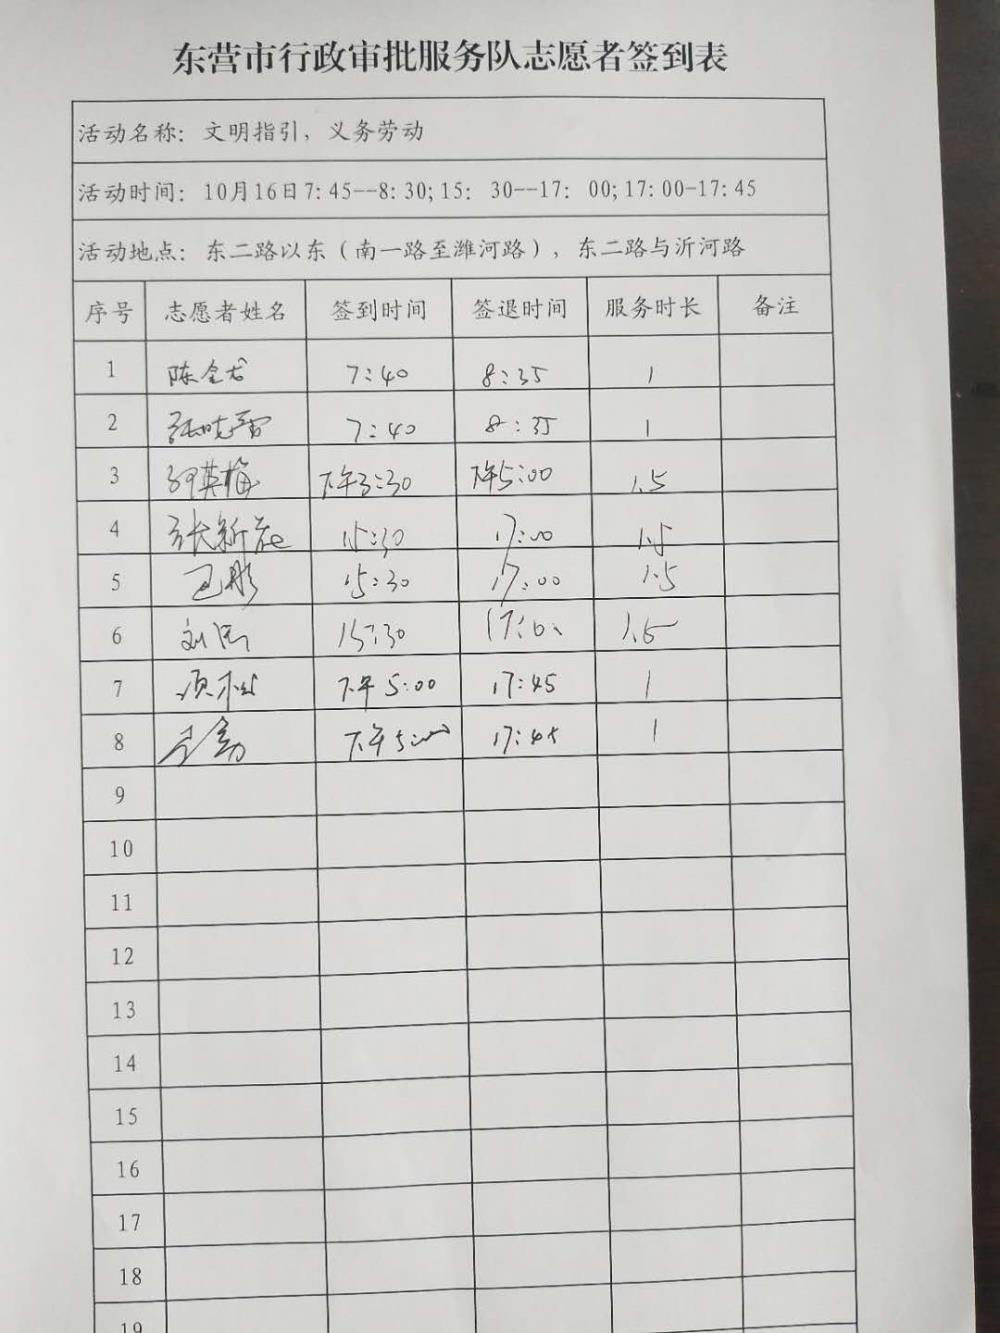 东营市行政审批服务队志愿者签到表
活动名称：文明指引，义务劳动
活动时间：10月16日7:45--8:30;15：30--17：00;17:00-17:45
活动地点：东二路以东（南一路至潍河路），东二路与沂河路
序号 志愿者姓名 签到时间 签退时间 服务时长 备注
1 陈全龙 7:40 8:35 1
2 张晓雷 7:40 8:35 1
3 英梅 下午3:30 下午5:00 1.5
4 张新花 15:30 17:00 1.5
5 15:30 17:00 1.5
6 刘 15:30 17:00 1.5
7 下午5:00 17:45 1
8 下午5:00 17:45 1
9
10
11
12
13
14
15
16
17
18
19